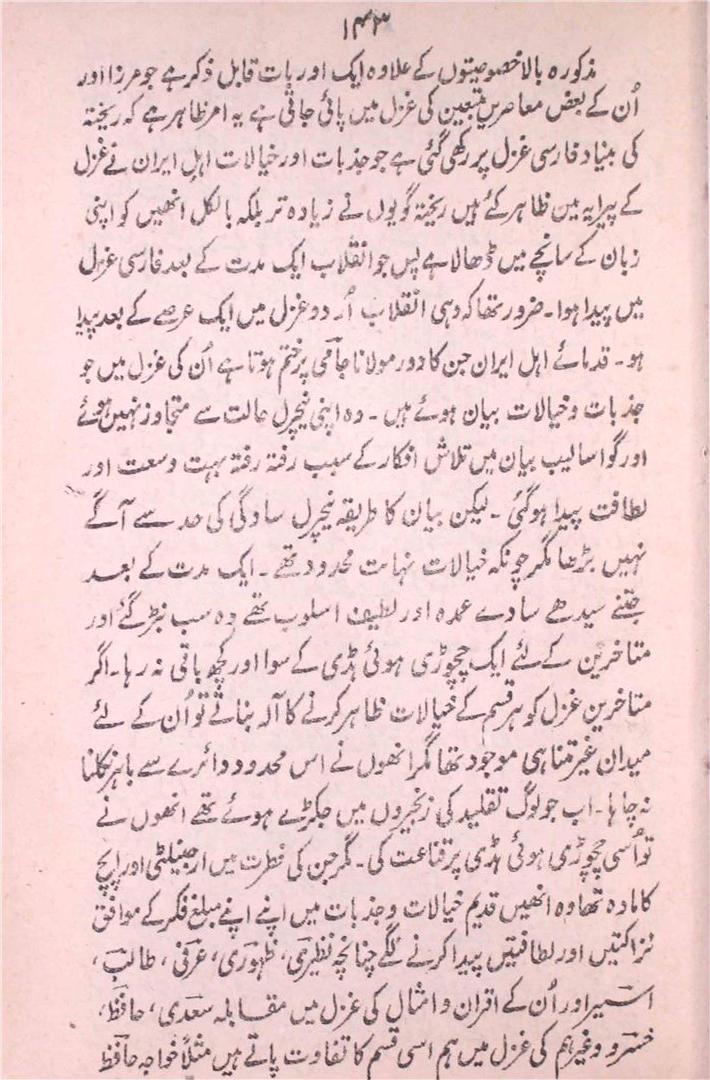 ۱۴۳
مذکورہ بالا خصوصیتوں کے علاوہ ایک اور بات قابل ذکر ہے جو مرزا اور
اُن کے بعض معاصرین متبعین کی غزل میں پائی جاتی ہے یہ امر ظاہر ہے کہ ریختہ
کی بنیاد فارسی غزل پر رکھی گئی ہے جو جذبات اور خیالات اہلِ ایران نے غزل
کے پیرایہ مین ظاہر کئے ہیں ریختہ گویوں نے زیادہ تر بلکہ بالکل انھیں کو اپنی
زبان کے سانچے میں ڈھالا ہے پس جو انقلاب ایک مدت کے بعد فارسی غزل
میں پیدا ہوا۔ ضرور تھا کہ وہی انقلاب اُردو غزل میں ایک عرصے کے بعد پیدا
ہو۔ قدمائے اہل ایران جن کا دور مولانا جامی پر ختم ہوتا ہے اُن کی غزل میں جو
جذبات و خیالات بیان ہوئے ہیں۔ وہ اپنی نیچرل حالت سے متجاوز نہیں ہوئے
اور گو اسالیب بیان میں تلاش افکار کے سبب رفتہ رفتہ بہت وسعت اور
لطافت پیدا ہوگئی۔ لیکن بیان کا طریقہ نیچرل سادگی کی حد سے آگے
نہیں بڑھا مگر چونکہ خیالات نہات محدود تھے۔ ایک مدت کے بعد
جتنے سیدھے سادے عمدہ اور لطیف اسلوب تھے وہ سب نبڑ گئے اور
متاخرین کے لئے ایک چچوڑی ہوئی ہڈی کے سوا اور کچھ باقی نہ رہا۔ اگر
متاخرین غزل کو ہر قسم کے خیالات ظاہر کرنے کا آلہ بناتے تو اُن کے لئے
میدان غیر متناہی موجود تھا مگر انھوں نے اس محدود دائرے سے باہر نکلنا
نہ چاہا۔ اب جو لوگ تقلید کی زنجیروں میں جکڑے ہوئے تھے انھوں نے
تو اُسی چچوڑی ہوئی ہڈی پر قناعت کی۔ مگر جن کی فطرت میں ارجنیلٹی اور اپچ
کا مادہ تھا وہ انھیں قدیم خیالات و جذبات میں اپنے اپنے مبلغ فکر کے موافق
نزاکتیں اور لطافتیں پیدا کرنے لگے چنانچہ نظیری، ظہوری، عرفی، طالب،
اسیر اور اُن کے اقران و امثال کی غزل میں مقابلہ سعدی، حافظ،
خسرو وغیرہم کی غزل میں ہم اسی قسم کا تفاوت پاتے ہیں مثلاً خواجہ حافظ